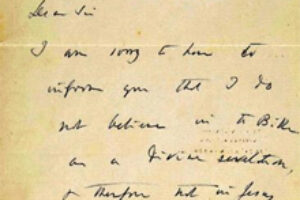 Dear Sir
I am sorry to have to
inform you that I do
not believe in the Bible
as a divine revelation,
& therefore not in Jesus